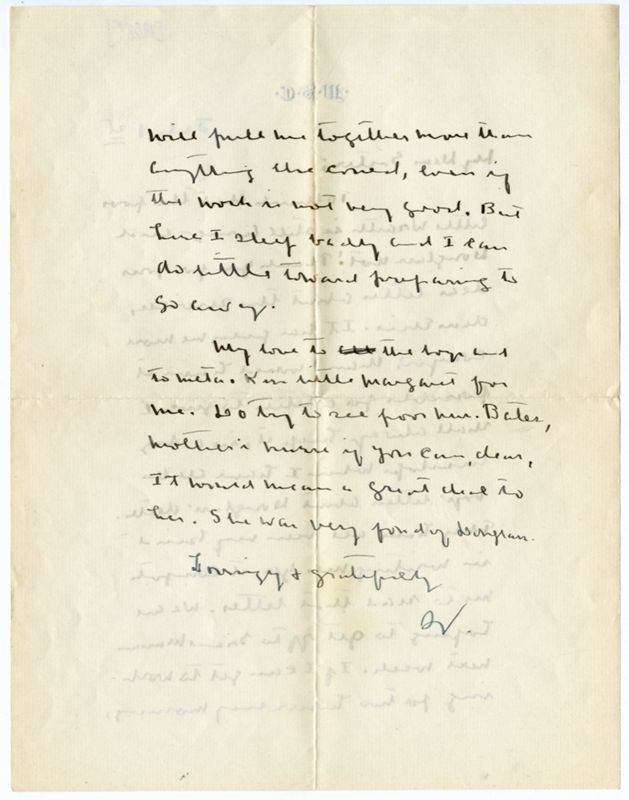 will pull me together more than
anything else could, even if
the work is not very good. But
here I sleep badly and I can
do little toward preparing to
go away.
My love to all the boys and
to Meta. Kiss little Margaret for
me. Do try to see poor Mrs. Bates,
mother's nurse if you can, dear,
It would mean a great deal to
her. She was very fond of Douglass.
Lovingly & gratefully
W.